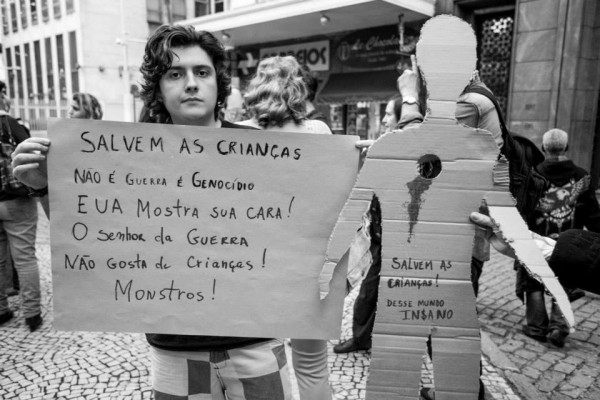 SALVEM AS CRIANÇAS
NÃO É GUERRA É GENOCÍDIO
EUA MOSTRA SUA CARA!
O SENHOR DA GUERRA
NÃO GOSTA de CRIANÇAS!
MONSTROS!
SALVEM AS
CRIANÇAS!
DESSE MUNDO
IN$ANO